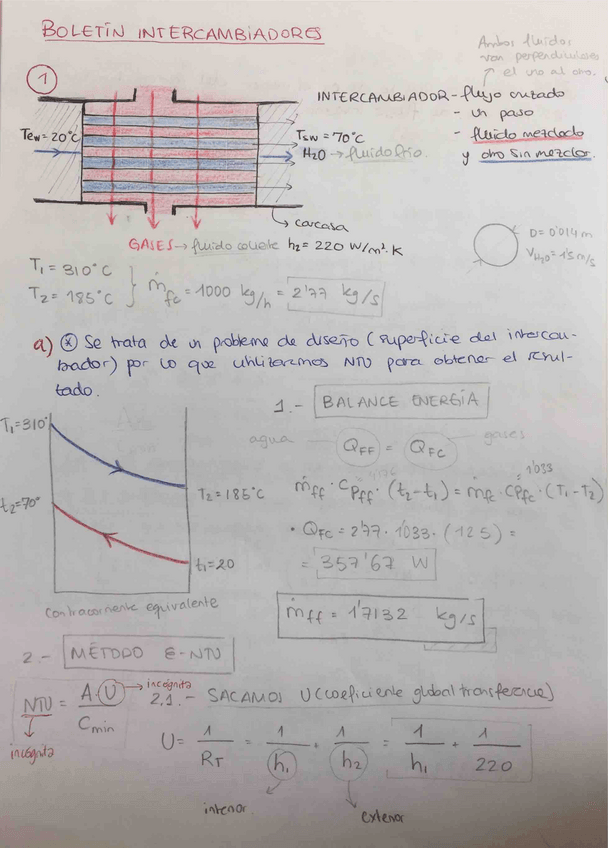 BOLETÍN INTERCAMBIADORES
Ambos fluidos
van perpendiculares
el uno al otro.
1
INTERCAMBIADOR - flujo cruzado
- un paso
- fluido mezclado
y otro sin mezclar.
Tew = 20°C
Tsw = 70°C
H2O → fluido frío.
carcasa
GASES → fluido caliente h2 = 220 W/m²·K
D = 0'014 m
VH2O = 1'5 m/s
T1 = 310°C
T2 = 185°C
ṁfc = 1000 kg/h = 2'77 kg/s
a) * Se trata de un problema de diseño (superficie del intercam-
biador) por lo que utilizaremos NTU para obtener el resul-
tado.
1.- BALANCE ENERGÍA
agua QFF = QFC gases
T1=310°
t2=70°
T2 = 185°C
t1=20
contracorriente equivalente
1'033
ṁff · Cpff · (t2-t1) = ṁfc · Cpfc · (T1-T2)
• QFC = 2'77 · 1'033 · (125) =
= 357'67 W
ṁff = 1'7132 kg/s
2.- MÉTODO E-NTU
NTU = A·U / Cmin
incógnita
incógnita
2.1.- SACAMOS U (coeficiente global transferencia)
U = 1/RT = 1/h1 + 1/h2 = 1/h1 + 1/220
interior
exterior